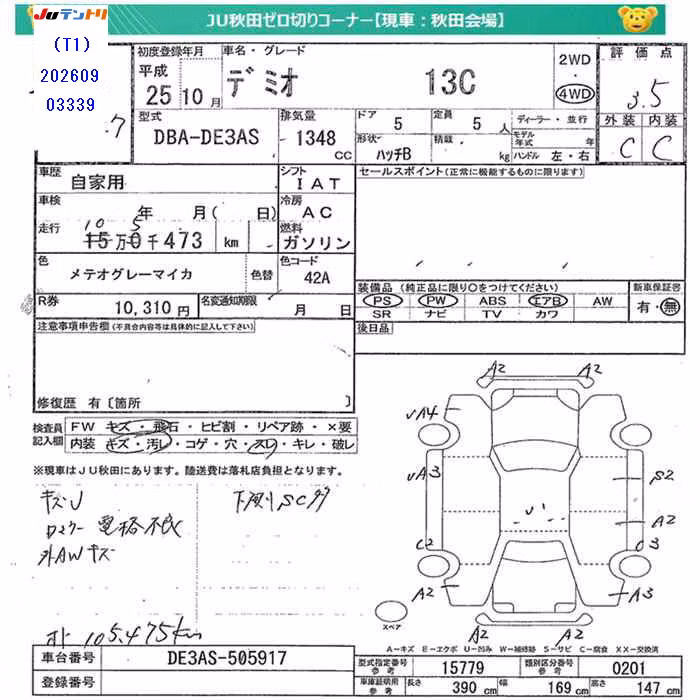 JUテントリ
JU秋田ゼロ切りコーナー【現車:秋田会場】
(T1)
202609
03339
初度登録年月
平成
25 10月
車名・グレード
デミオ 13C
2WD
・
4WD
評価点
3.5
外装 内装
C C
型式
DBA-DE3AS
排気量
1348
CC
ドア 5
形状 ハッチB
定員 5 人
積載 kg
ディーラー・並行
モデル年式 年
ハンドル 左・右
車歴
自家用
シフト
IAT
車検
年 月( 日)
冷房
AC
走行
10 5
15万0千473 km
燃料
ガソリン
色
メテオグレーマイカ
色替
色コード
42A
R券
10,310円
名変通知期限
月 日
セールスポイント(正常に機能するものに限ります)
装備品(純正品に限り○をつけてください)
PS PW ABS エアB AW
SR ナビ TV カワ
新車保証書
有・無
後日品
注意事項申告欄(不具合内容等は具体的に記入して下さい)
修復歴 有〔箇所 〕
検査員
記入欄
FW キズ・飛石・ヒビ割・リペア跡・×要
内装 キズ・汚レ・コゲ・穴・スレ・キレ・破レ
※現車はJU秋田にあります。陸送費は落札店負担となります。
キズU
下廻りSCサケ
ロミラー電格不良
外AWキズ
105.475km
A2 A2
A4
A3
S2
A2
U1
C2
C3
A2
A3
A2 A2
スペア
A-キズ E-エクボ U-凹み W-補修跡 S-サビ C-腐食 XX-交換済
車台番号
DE3AS-505917
登録番号
型式指定番号
参考
15779
類別区分番号
参考
0201
車庫証明用
参考
長さ 390 cm
幅 169 cm
高さ 147 cm